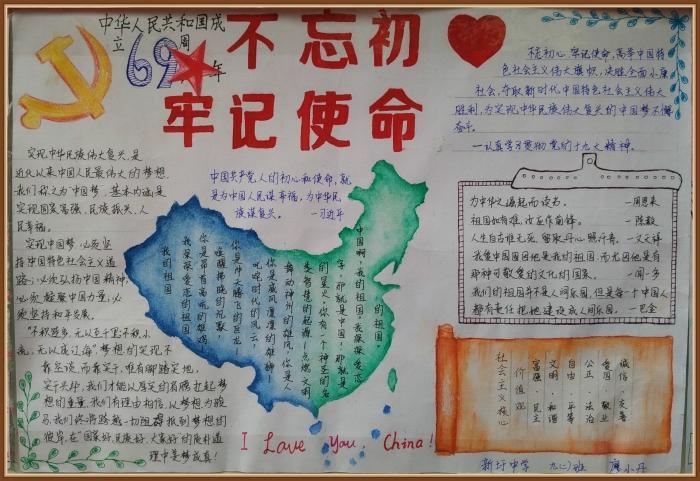 中华人民共和国成
立69周年
不忘初
牢记使命
实现中华民族伟大复兴,是
近代以来中国人民最伟大的梦想,
我们称之为中国梦,基本内涵是
实现国家富强、民族振兴、人
民幸福。
实现中国梦,必须坚
持中国特色社会主义道
路;必须弘扬中国精神,
必须凝聚中国力量,必
须坚持和平发展。
"不积跬步,无以至千里;不积小
流,无以成江海"梦想的实现不
靠空谈,而靠实干,唯有脚踏实地,
实干兴邦,我们才能以厚实的肩膀扛起梦
想的重量,我们有理由相信,以梦想为骏
马,我们终将跨越一切阻碍,抵到梦想的
彼岸,在"国家好,民族好,大家好"的质朴道
理中是梦成真!
中国共产党人的初心和使命,就
是为中国人民谋幸福,为中华民
族谋复兴。 —习近平
不忘初心,牢记使命,高举中国特
色社会主义伟大旗帜,决胜全面小康
社会,夺取新时代中国特色社会主义伟大
胜利,为实现中华民族伟大复兴的中国梦不懈
奋斗。
—认真学习贯彻党的十九大精神。
为中华之崛起而读书。 —周恩来
祖国如有难,汝应作前锋。 —陈毅
人生自古谁无死,留取丹心照汗青。 —文天祥
我爱中国固因他是我的祖国,而尤因他是有
那种可敬爱的文化的国家。 —闻一多
我们的祖国并不是人间乐园,但是每一个中国人
都有责任把她建设成人间乐园。 —巴金
的祖国
中国啊,我的祖国,我深深爱恋
字,那就是中国,那就是
的星火,你有一个神圣的名
是智慧的起源,点燃文明
舞动神州的雄风,你是人
叱咤时代的风云,
你是威风凛凛的雄狮—
你是冲天腾飞的巨龙—
唤醒拂晓的沉默,
你是昂首高吭的雄鸡—
我深深爱恋的祖国
我的祖国
社会主义核心
价值观
富强 民主
文明 和谐
自由 平等
公正 法治
爱国 敬业
诚信 友善
I Love You, China!
新圩中学 九(二)班 廖小丹